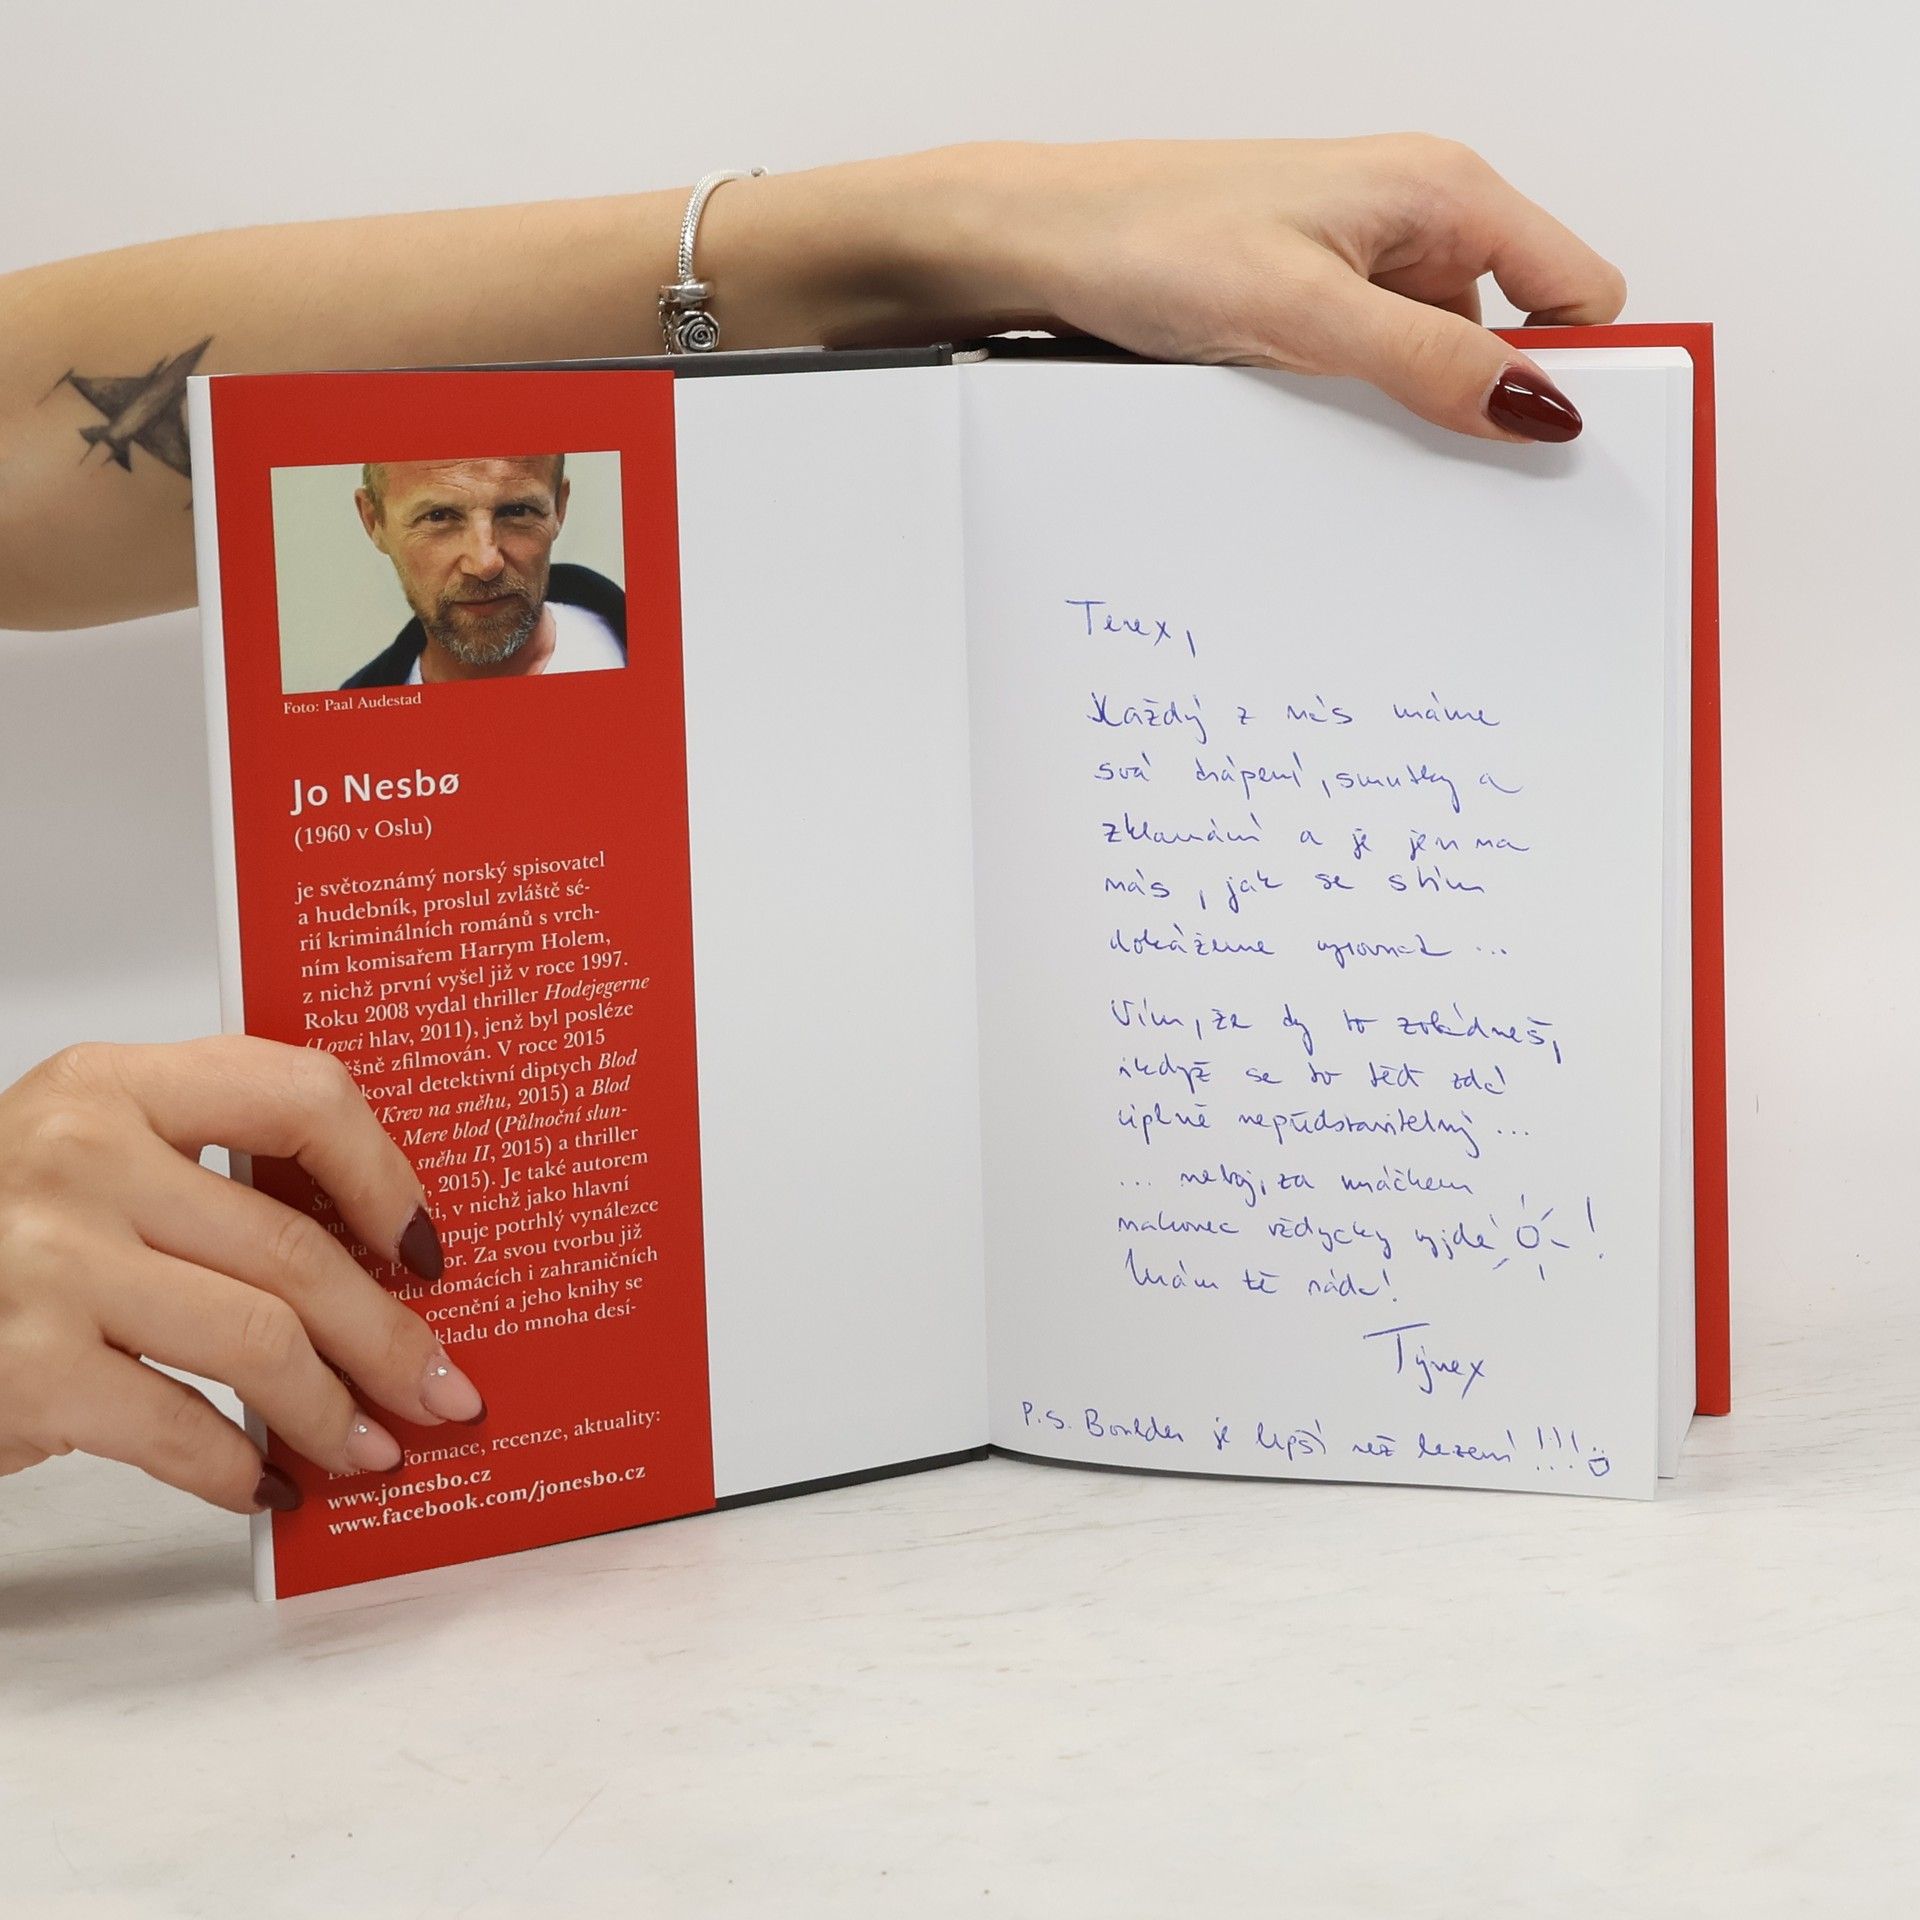 Foto: Paal Audestad
Jo Nesbø
(1960 v Oslu)
je světoznámý norský spisovatel
a hudebník, proslul zvláště sé-
rií kriminálních románů s vrch-
ním komisařem Harrym Holem,
z nichž první vyšel již v roce 1997.
Roku 2008 vydal thriller Hodejegerne
(Lovci hlav, 2011), jenž byl posléze
ěšně zfilmován. V roce 2015
koval detektivní diptych Blod
(Krev na sněhu, 2015) a Blod
Mere blod (Půlnoční slun-
sněhu II, 2015) a thriller
, 2015). Je také autorem
ti, v nichž jako hlavní
upuje potrhlý vynálezce
or. Za svou tvorbu již
adu domácích i zahraničních
ocenění a jeho knihy se
kladu do mnoha desí-
formace, recenze, aktuality:
www.jonesbo.cz
www.facebook.com/jonesbo.cz
Terex,
Každý z nás máme
svá trápení, smutky a
zklamání a je jen na
nás, jak se s tím
dokážeme vyrovnat ...
Vím, že ty to zvládneš,
ikdyž se to teď zdá
úplně nepředstavitelný ...
... neboj, za mráčkem
nakonec vždycky vyjde !
Mám tě ráda!
Týnex
P.S. Boulder je lepší než lezení !!!